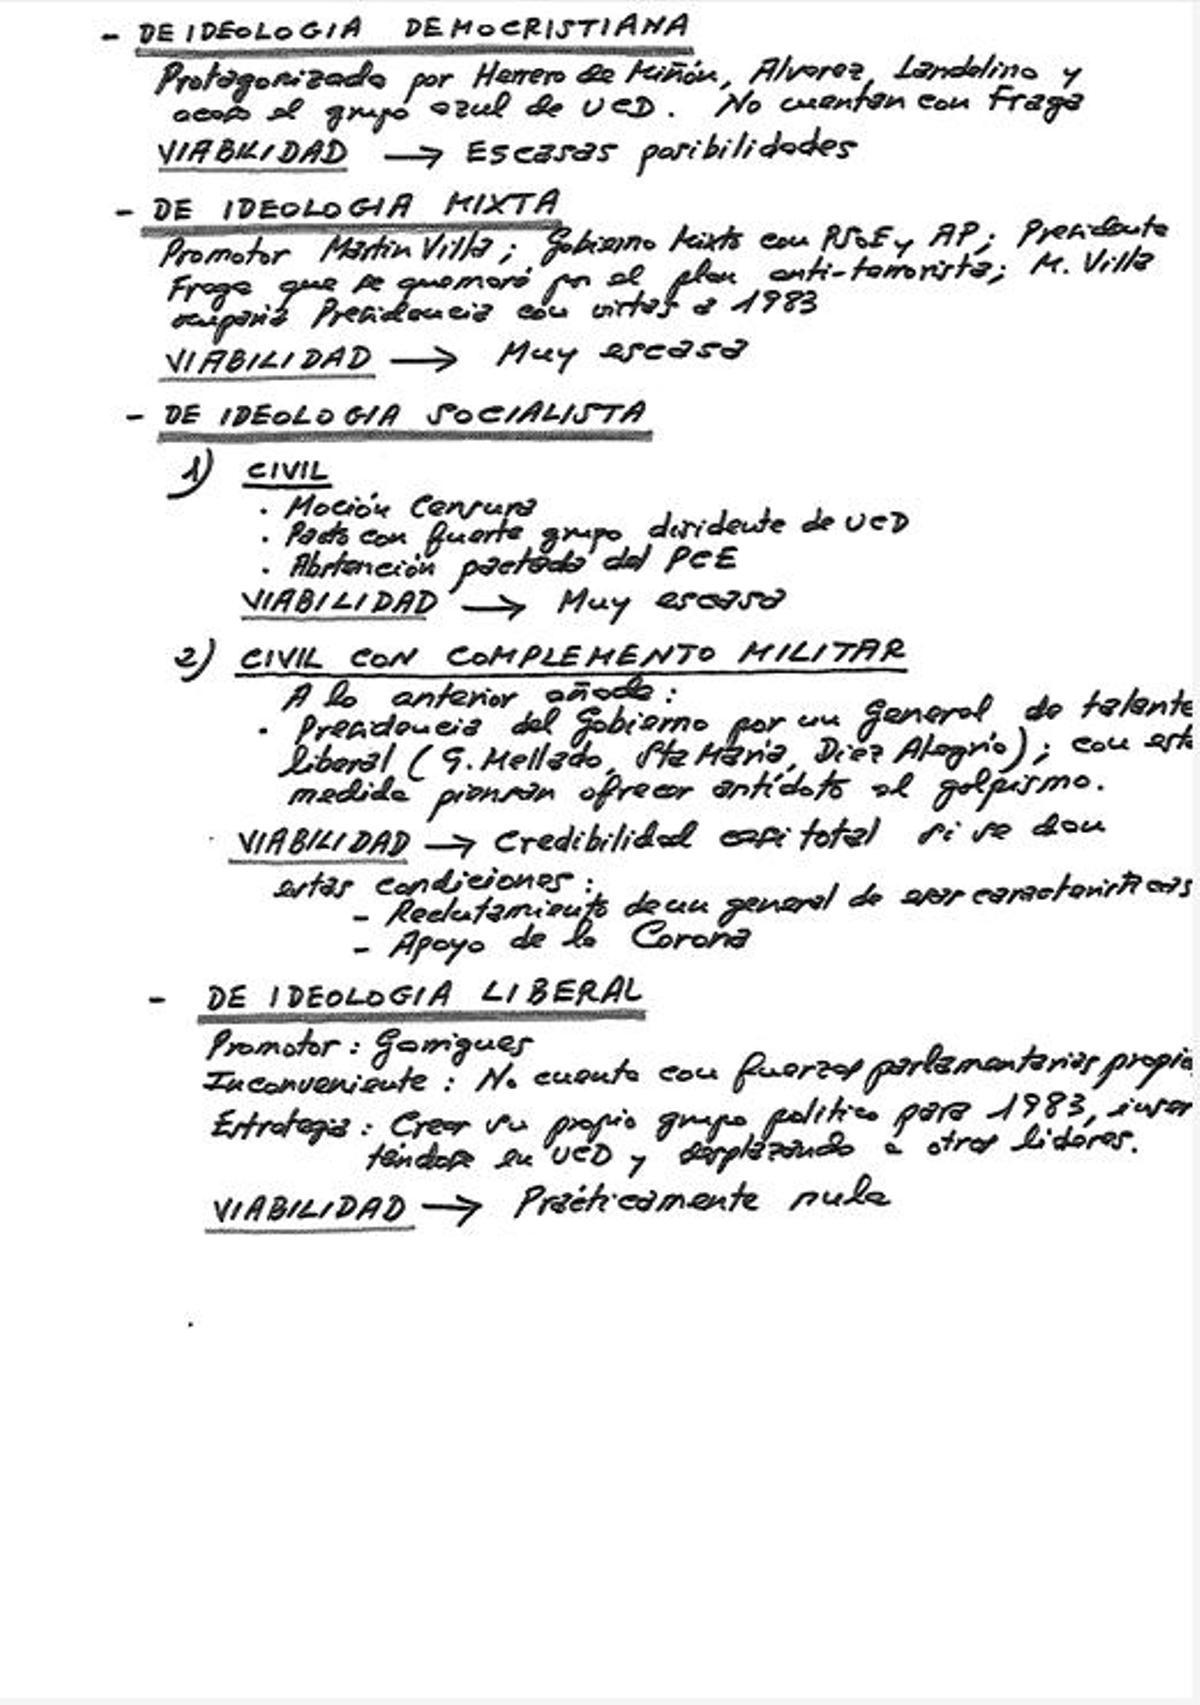 - DE IDEOLOGIA DEMOCRISTIANA
Protagonizada por Herrero de Miñón, Alvarez, Landelino y
acaso el grupo azul de UCD. No cuentan con Fraga
VIABILIDAD → Escasas posibilidades
- DE IDEOLOGIA MIXTA
Promotor Martín Villa; Gobierno Mixto con PSOE y AP; Presidente
Fraga que se quemará por el plan anti-terrorista; M. Villa
ocuparía Presidencia con vistas a 1983
VIABILIDAD → Muy escasa
- DE IDEOLOGIA SOCIALISTA
1) CIVIL
· Moción Censura
· Pacto con fuerte grupo disidente de UCD
· Abstención pactada del PCE
VIABILIDAD → Muy escasa
2) CIVIL CON COMPLEMENTO MILITAR
A lo anterior añade:
· Presidencia del Gobierno por un General de talante
liberal (G. Mellado, Sta María, Díez Alegría); con esta
medida piensan ofrecer antídoto al golpismo.
VIABILIDAD → Credibilidad casi total si se dan
estas condiciones:
- Reclutamiento de un general de esas características
- Apoyo de la Corona
- DE IDEOLOGIA LIBERAL
Promotor: Garrigues
Inconveniente: No cuenta con fuerzas parlamentarias propia
Estrategia: Crear su propio grupo político para 1983, inser
tándose en UCD y desplazando a otros líderes.
VIABILIDAD → Prácticamente nula